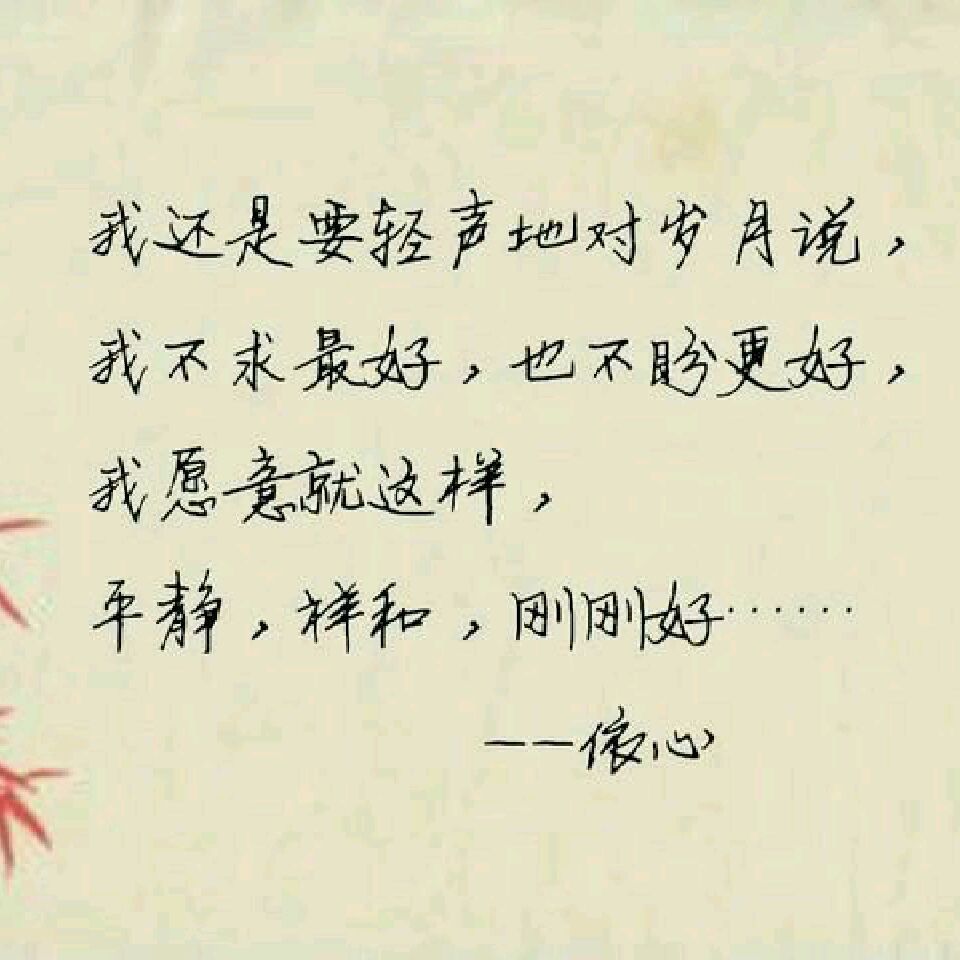 我还是要轻声地对岁月说，
我不求最好，也不盼更好，
我愿意就这样，
平静，祥和，刚刚好······
——依心